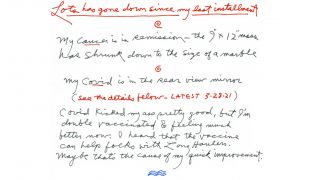 Lots has gone down since my last installment
@
My Cancer is in remission - the 9" x 12" mass
has shrunk down to the size of a marble
@
My Covid is in the rear view mirror
(see the details below - LATEST 5-28-21)
Covid Kicked my ass pretty good, but I'm
double vaccinated & feeling much
better now. I heard that the vaccine
can help folks with Long Haulers.
Maybe that's the cause of my quick improvement.